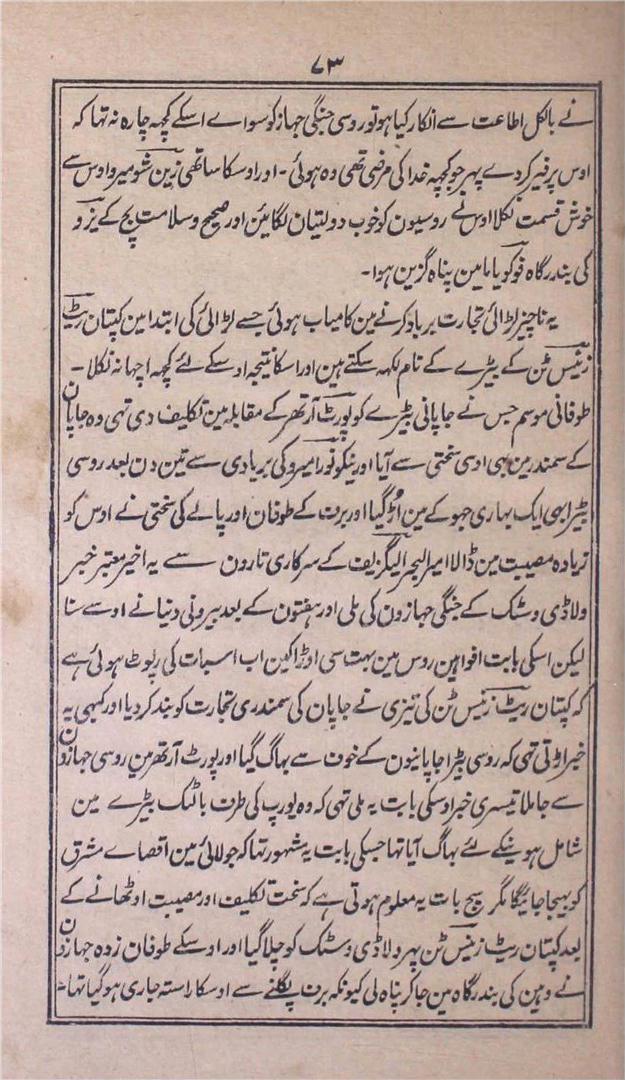 ۷۳
نے بالکل اطاعت سے انکار کیا ہو تو روسی جنگی جہاز کو سواے اسکے کچہہ چارہ نہ تہا کہ
اوس پر فیر کردے پہر جو کچہہ خدا کی مرضی تہی وہ ہوئی - اور اوسکا ساتھی زین شومیرو اوس سے
خوش قسمت نکلا اوس نے روسیون کو خوب دولتیان لگائین اور صحیح وسلامت بچ کے یزو
کی بندرگاہ فوکویاما مین پناہ گزین ہوا۔
یہ ناچیز لڑائی تجارت برباد کرنے مین کامیاب ہوئی جسے لڑائی کی ابتدا مین کپتان ریٹ
زنیس ٹن کے بیڑے کے نام لکہہ سکتے ہین اور اسکا نتیجہ اوسکے لئے کچہہ اچہا نہ نکلا -
طوفانی موسم جس نے جاپانی بیڑے کو پورٹ آرتھر کے مقابلہ مین تکلیف دی تہی وہ جاپان
کے سمندر مین بہی اوسی سختی سے آیا اور نیکونورا میرو کی بربادی سے تین دن بعد روسی
بیڑا بہی ایک بہاری جہوکے مین اڑ گیا اور برف کے طوفان اور پالے کی سختی نے اوس کو
زیادہ مصیبت مین ڈالا امیرالبحر الیگزیف کے سرکاری تارون سے یہ اخیر معتبر خبر
ولاڈی وسٹک کے جنگی جہازون کی ملی اور ہفتون کے بعد بیرونی دنیا نے اوسے سنا
لیکن اسکی بابت افواہین روس مین بہت سی اوڑا کین اب اسبات کی رپوٹ ہوئی ہے
کہ کپتان ریٹ زنیس ٹن کی تیزی نے جاپان کی سمندری تجارت کو بند کردیا اور کبہی یہ
خبر اوڑتی تہی کہ روسی بیڑا جاپانیون کے خوف سے بہاگ گیا اور پورٹ آرتھر مین روسی جہازون
سے جا ملا تیسری خبر اوسکی بابت یہ ملی تہی کہ وہ یورپ کی طرف بالٹک بیڑے مین
شامل ہونیکے لئے بہاگ آیا تہا جسکی بابت یہ مشہور تہا کہ جولائی مین اقصاے مشرق
کو بہیجا جائیگا مگر سچ بات یہ معلوم ہوتی ہے کہ سخت تکلیف اور مصیبت اوٹھانے کے
بعد کپتان ریٹ زنیس ٹن پہر ولاڈی وسٹک کو چلا گیا اور اوسکے طوفان زدہ جہازون
نے وہین کی بندرگاہ مین جاکر پناہ لی کیونکہ برف پگلنے سے اوسکا راستہ جاری ہوگیا تہا۔